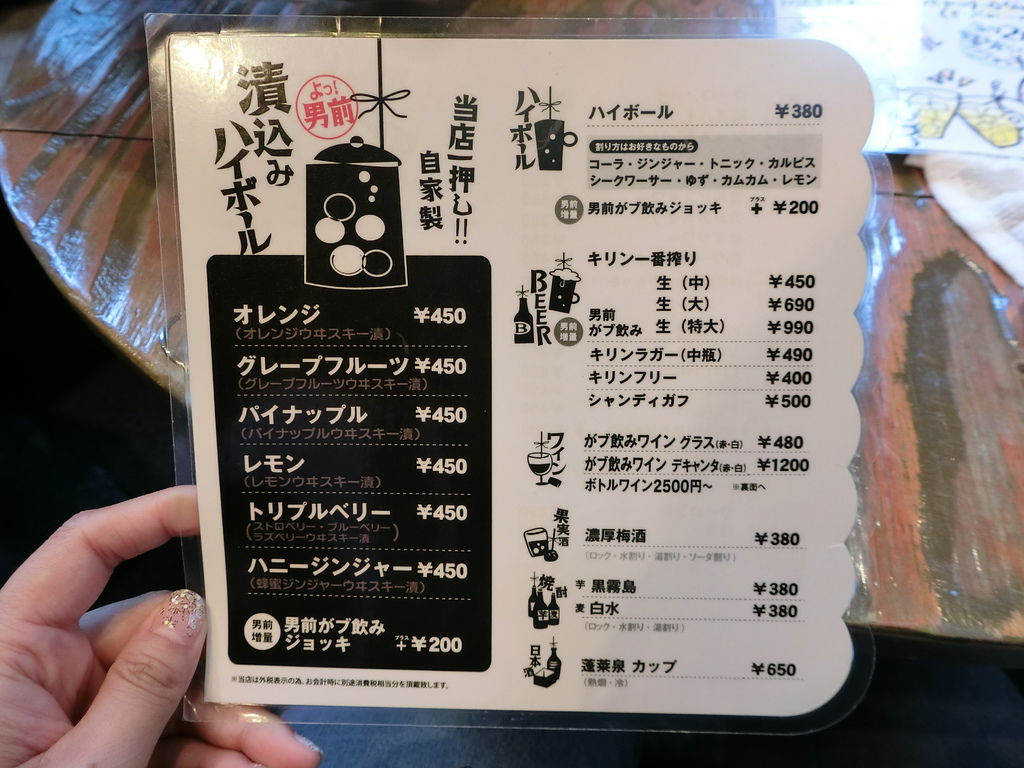 漬込み
ハイボール
よっ!
男前
当店一押し!!
自家製
オレンジ ¥450
(オレンジウヰスキー漬)
グレープフルーツ ¥450
(グレープフルーツウヰスキー漬)
パイナップル ¥450
(パイナップルウヰスキー漬)
レモン ¥450
(レモンウヰスキー漬)
トリプルベリー ¥450
(ストロベリー・ブルーベリー
ラズベリーウヰスキー漬)
ハニージンジャー ¥450
(蜂蜜ジンジャーウヰスキー漬)
男前
増量
男前がブ飲み
ジョッキ プラス + ¥200
※当店は外税表示の為、お会計時に別途消費税相当分を頂戴致します。
ハイボール
ハイボール ¥380
割り方はお好きなものから
コーラ・ジンジャー・トニック・カルピス
シークワーサー・ゆず・カムカム・レモン
男前
増量
男前がブ飲みジョッキ プラス + ¥200
BEER
B
キリン一番搾り
生(中) ¥450
生(大) ¥690
男前
増量
男前
がブ飲み 生(特大) ¥990
キリンラガー(中瓶) ¥490
キリンフリー ¥400
シャンディガフ ¥500
ワイン
がブ飲みワイン グラス(赤・白) ¥480
がブ飲みワイン デキャンタ(赤・白) ¥1200
ボトルワイン2500円〜 ※裏面へ
果実酒
濃厚梅酒 ¥380
(ロック・水割り・湯割り・ソーダ割り)
焼酎
芋 黒霧島 ¥380
麦 白水 ¥380
(ロック・水割り・湯割り)
日本酒
蓬莱泉 カップ ¥650
(熱燗・冷)